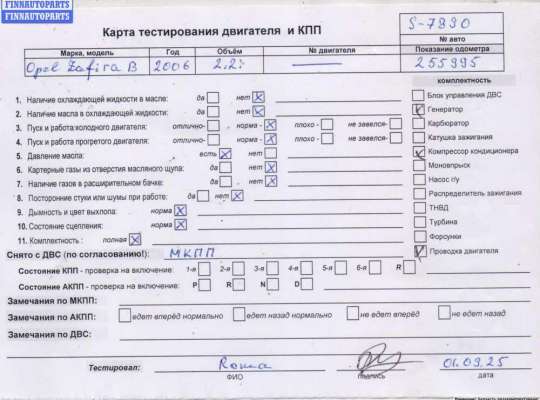 FINNAUTOPARTS
FINNAUTOPARTS
Карта тестирования двигателя и КПП
S-7890
№ авто
Марка, модель Год Объём № двигателя Показание одометра
Opel Zafira B 2006 2.2i 255995
комплектность
Блок управления ДВС
1. Наличие охлаждающей жидкости в масле: да нет
Генератор
2. Наличие масла в охлаждающей жидкости: да нет
Карбюратор
3. Пуск и работа холодного двигателя: отлично- норма - плохо- не завелся-
Катушка зажигания
4. Пуск и работа прогретого двигателя: отлично- норма - плохо - не завелся-
Компрессор кондиционера
5. Давление масла: есть нет
Моновпрыск
6. Картерные газы из отверстия масляного щупа: да нет
Насос г/у
7. Наличие газов в расширительном бачке: да нет
Распределитель зажигания
8. Посторонние стуки или шумы при работе: да нет
ТНВД
9. Дымность и цвет выхлопа: норма
Турбина
10. Состояние сцепления: норма
Форсунки
11. Комплектность : полная
Проводка двигателя
Снято с ДВС (по согласованию!): МКПП
Состояние КПП - проверка на включение: 1-я 2-я 3-я 4-я 5-я 6-я R
Состояние АКПП - проверка на включение: P R N D
Замечания по МКПП:
Замечания по АКПП: едет вперёд нормально едет назад нормально не едет вперёд не едет назад
Замечания по ДВС:
Тестировал: Roma 01.09.25
ФИО подпись дата